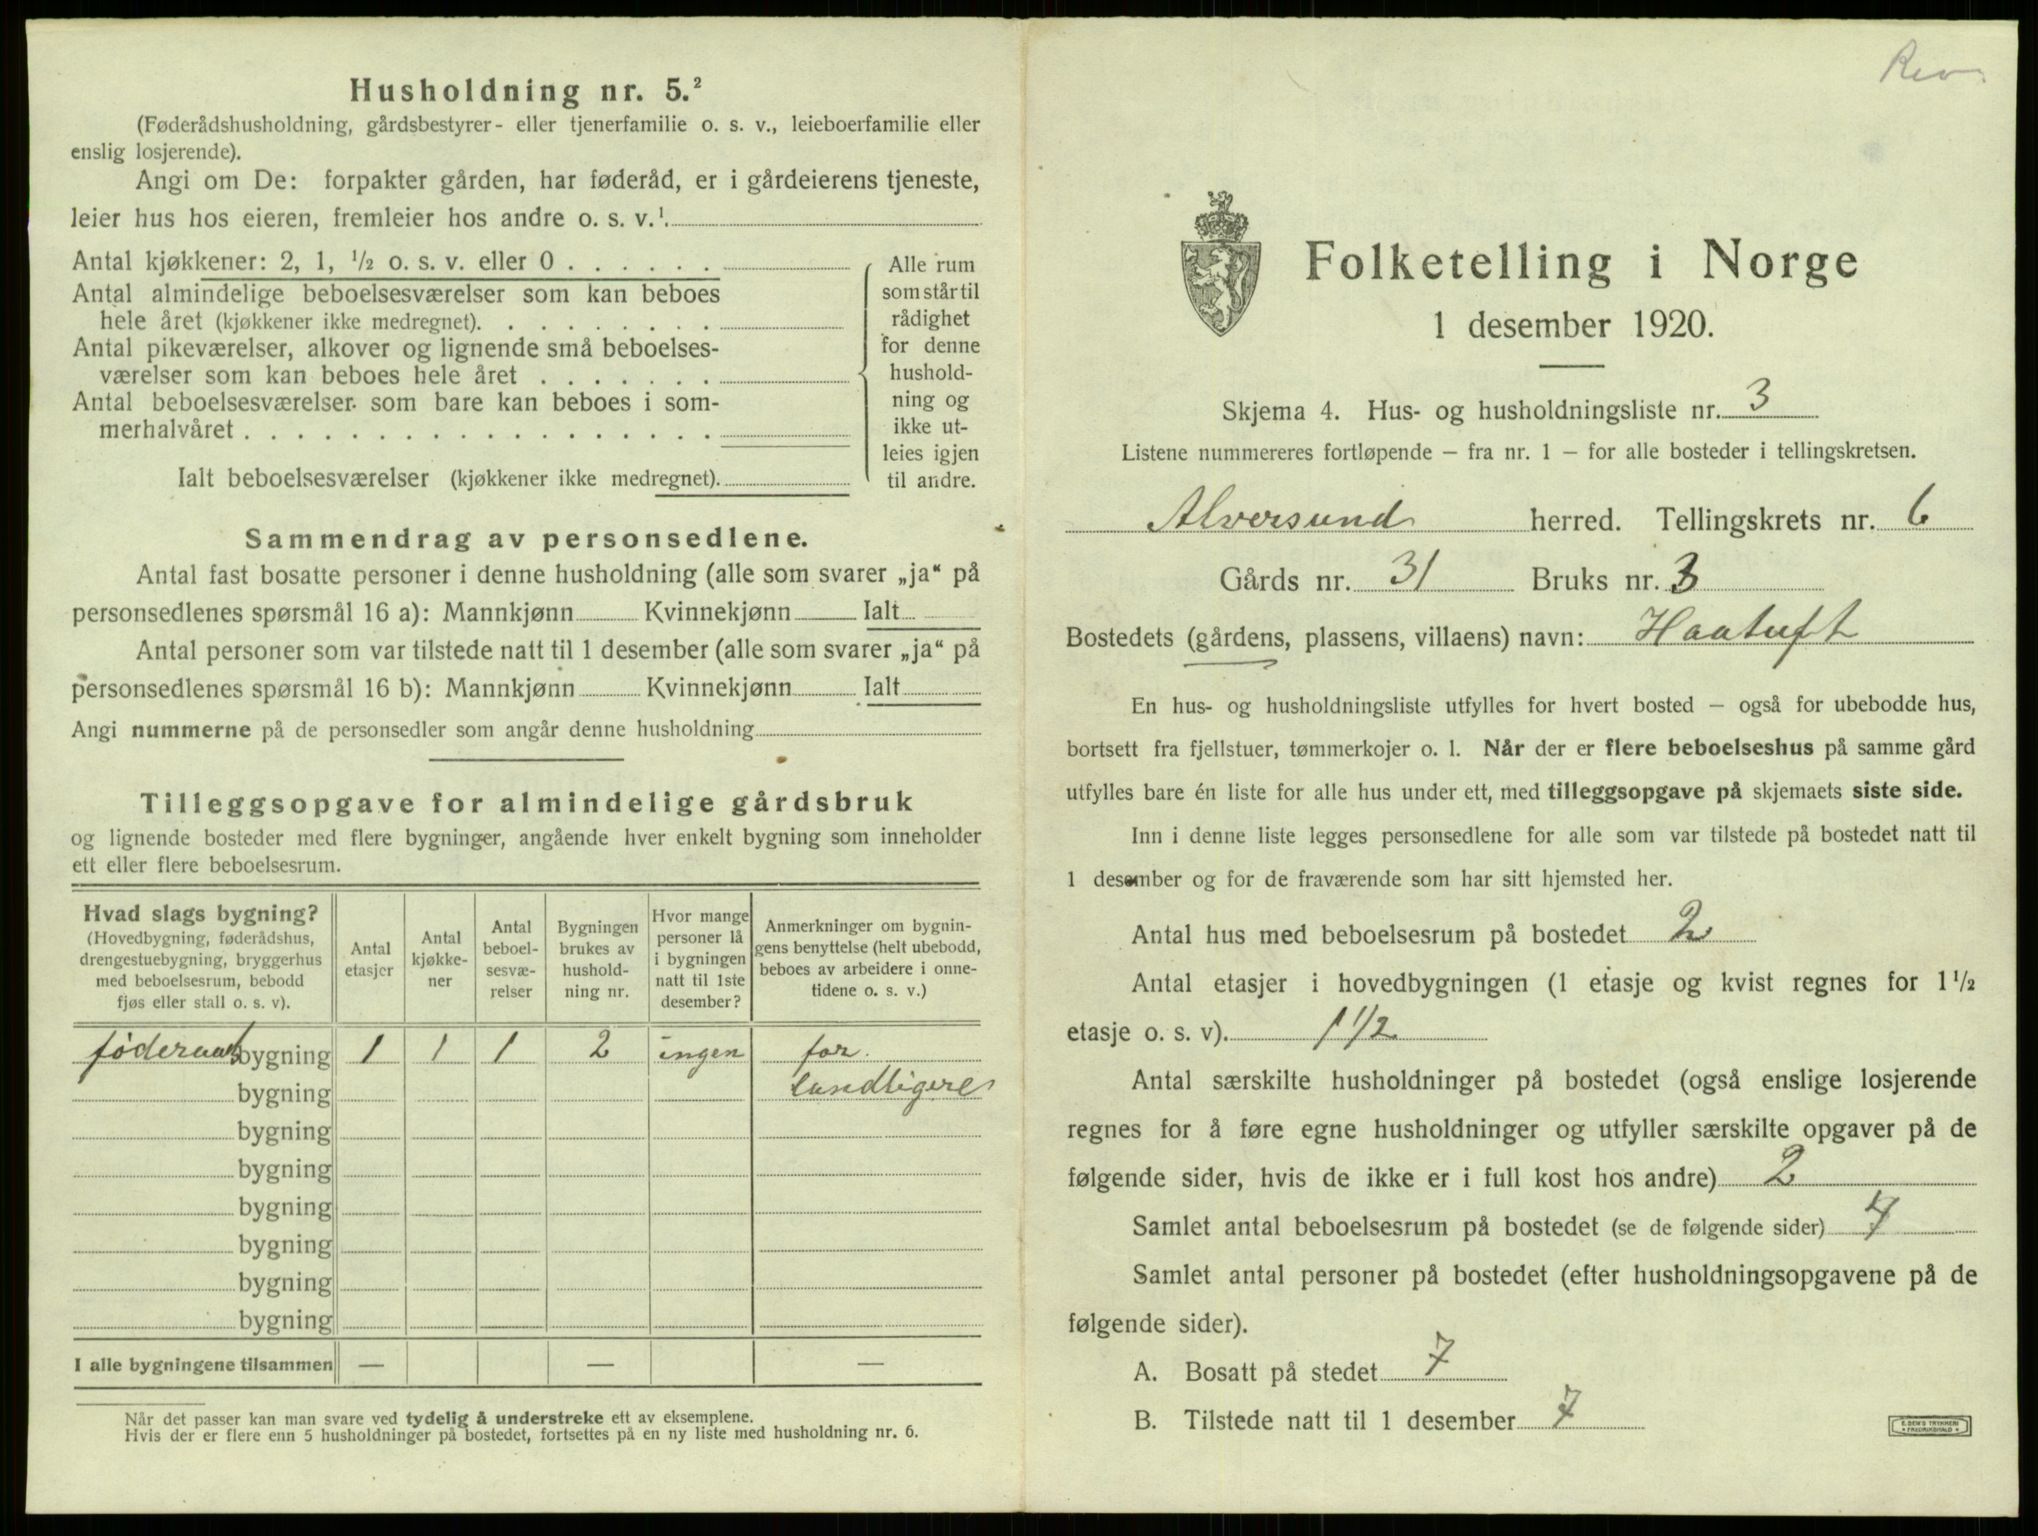 Husholdning nr. 5.²
(Føderådshusholdning, gårdsbestyrer- eller tjenerfamilie o. s. v., leieboerfamilie eller
enslig losjerende).
Angi om De: forpakter gården, har føderåd, er i gårdeierens tjeneste,
leier hus hos eieren, fremleier hos andre o. s. v.¹
Antal kjøkkener: 2, 1, ½ o. s. v. eller 0
Antal almindelige beboelsesværelser som kan beboes
hele året (kjøkkener ikke medregnet).
Antal pikeværelser, alkover og lignende små beboelses-
værelser som kan beboes hele året
Antal beboelsesværelser som bare kan beboes i som-
merhalvåret
Ialt beboelsesværelser (kjøkkener ikke medregnet).
Alle rum
som står til
rådighet
for denne
hushold-
ning og
ikke ut-
leies igjen
til andre.
Sammendrag av personsedlene.
Antal fast bosatte personer i denne husholdning (alle som svarer „ja“ på
personsedlenes spørsmål 16 a): Mannkjønn Kvinnekjønn Ialt
Antal personer som var tilstede natt til 1 desember (alle som svarer „ja“ på
personsedlenes spørsmål 16 b): Mannkjønn Kvinnekjønn Ialt
Angi nummerne på de personsedler som angår denne husholdning
Tilleggsopgave for almindelige gårdsbruk
og lignende bosteder med flere bygninger, angående hver enkelt bygning som inneholder
ett eller flere beboelsesrum.
Hvad slags bygning?
(Hovedbygning, føderådshus,
drengestuebygning, bryggerhus
med beboelsesrum, bebodd
fjøs eller stall o. s. v).
Antal
etasjer
Antal
kjøkke-
ner
Antal
beboel-
sesvæ-
relser
Bygningen
brukes av
hushold-
ning nr.
Hvor mange
personer lå
i bygningen
natt til 1ste
desember?
Anmerkninger om bygnin-
gens benyttelse (helt ubebodd,
beboes av arbeidere i onne-
tidene o. s. v.)
føderaads bygning 1 1 1 2 ingen for
bygning landligere
bygning
bygning
bygning
bygning
bygning
bygning
I alle bygningene tilsammen — — —
Når det passer kan man svare ved tydelig å understreke ett av eksemplene.
Hvis der er flere enn 5 husholdninger på bostedet, fortsettes på en ny liste med husholdning nr. 6.
Rev.
Folketelling i Norge
1 desember 1920.
Skjema 4. Hus- og husholdningsliste nr. 3
Listene nummereres fortløpende — fra nr. 1 — for alle bosteder i tellingskretsen.
Alversund herred. Tellingskrets nr. 6
Gårds nr. 31 Bruks nr. 3
Bostedets (gårdens, plassens, villaens) navn: Haatuft
En hus- og husholdningsliste utfylles for hvert bosted — også for ubebodde hus,
bortsett fra fjellstuer, tømmerkojer o. l. Når der er flere beboelseshus på samme gård
utfylles bare én liste for alle hus under ett, med tilleggsopgave på skjemaets siste side.
Inn i denne liste legges personsedlene for alle som var tilstede på bostedet natt til
1 desember og for de fraværende som har sitt hjemsted her.
Antal hus med beboelsesrum på bostedet 2
Antal etasjer i hovedbygningen (1 etasje og kvist regnes for 1 ½
etasje o. s. v). 1 1/2
Antal særskilte husholdninger på bostedet (også enslige losjerende
regnes for å føre egne husholdninger og utfyller særskilte opgaver på de
følgende sider, hvis de ikke er i full kost hos andre) 2
Samlet antal beboelsesrum på bostedet (se de følgende sider) 7
Samlet antal personer på bostedet (efter husholdningsopgavene på de
følgende sider).
A. Bosatt på stedet 7
B. Tilstede natt til 1 desember 7
E. SEM'S TRYKKERI
FREDRIKSHALD